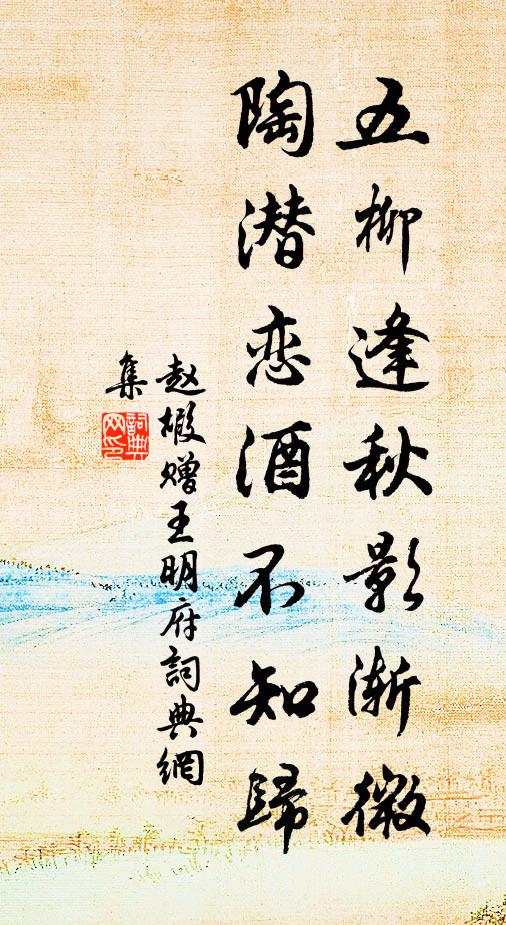 五柳逢秋影渐微
陶潜恋酒不知歸
赵嘏赠王明府詞典網
集
詞典
网印